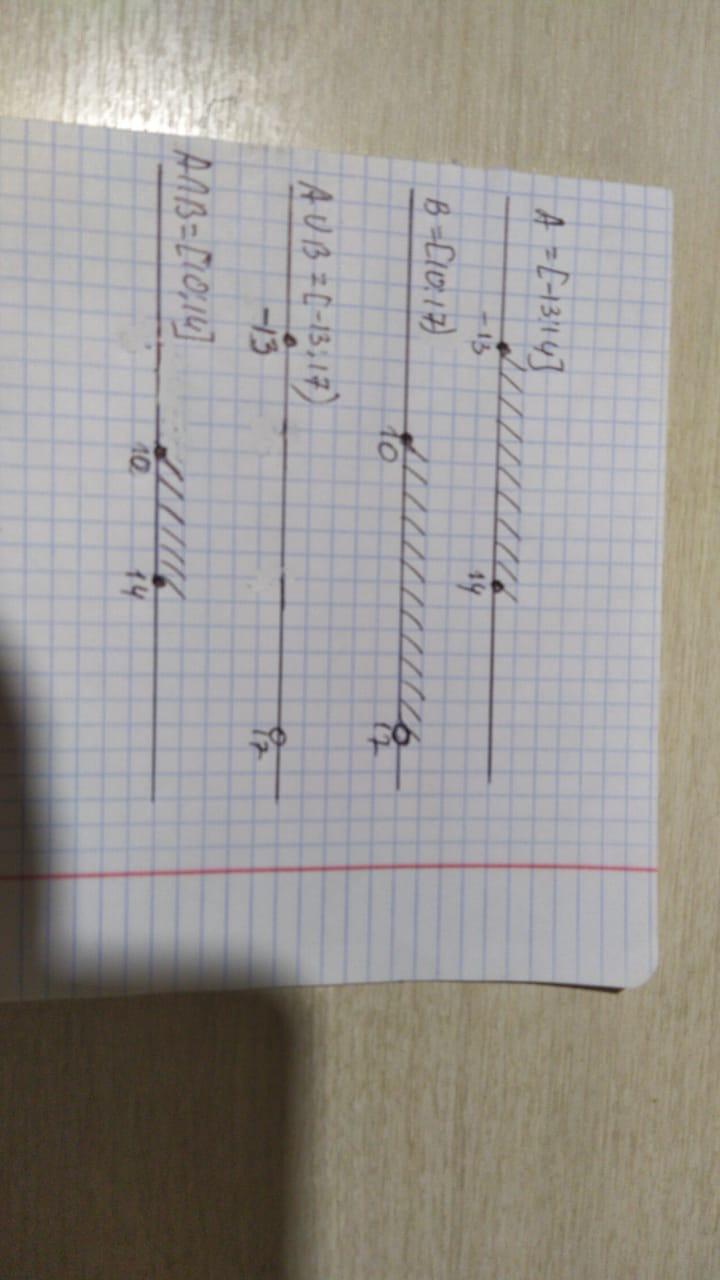 A = [-13;14]
-13 14
B = [10;17)
10 17
A∪B = [-13;17)
-13 17
A∩B = [10;14]
10 14